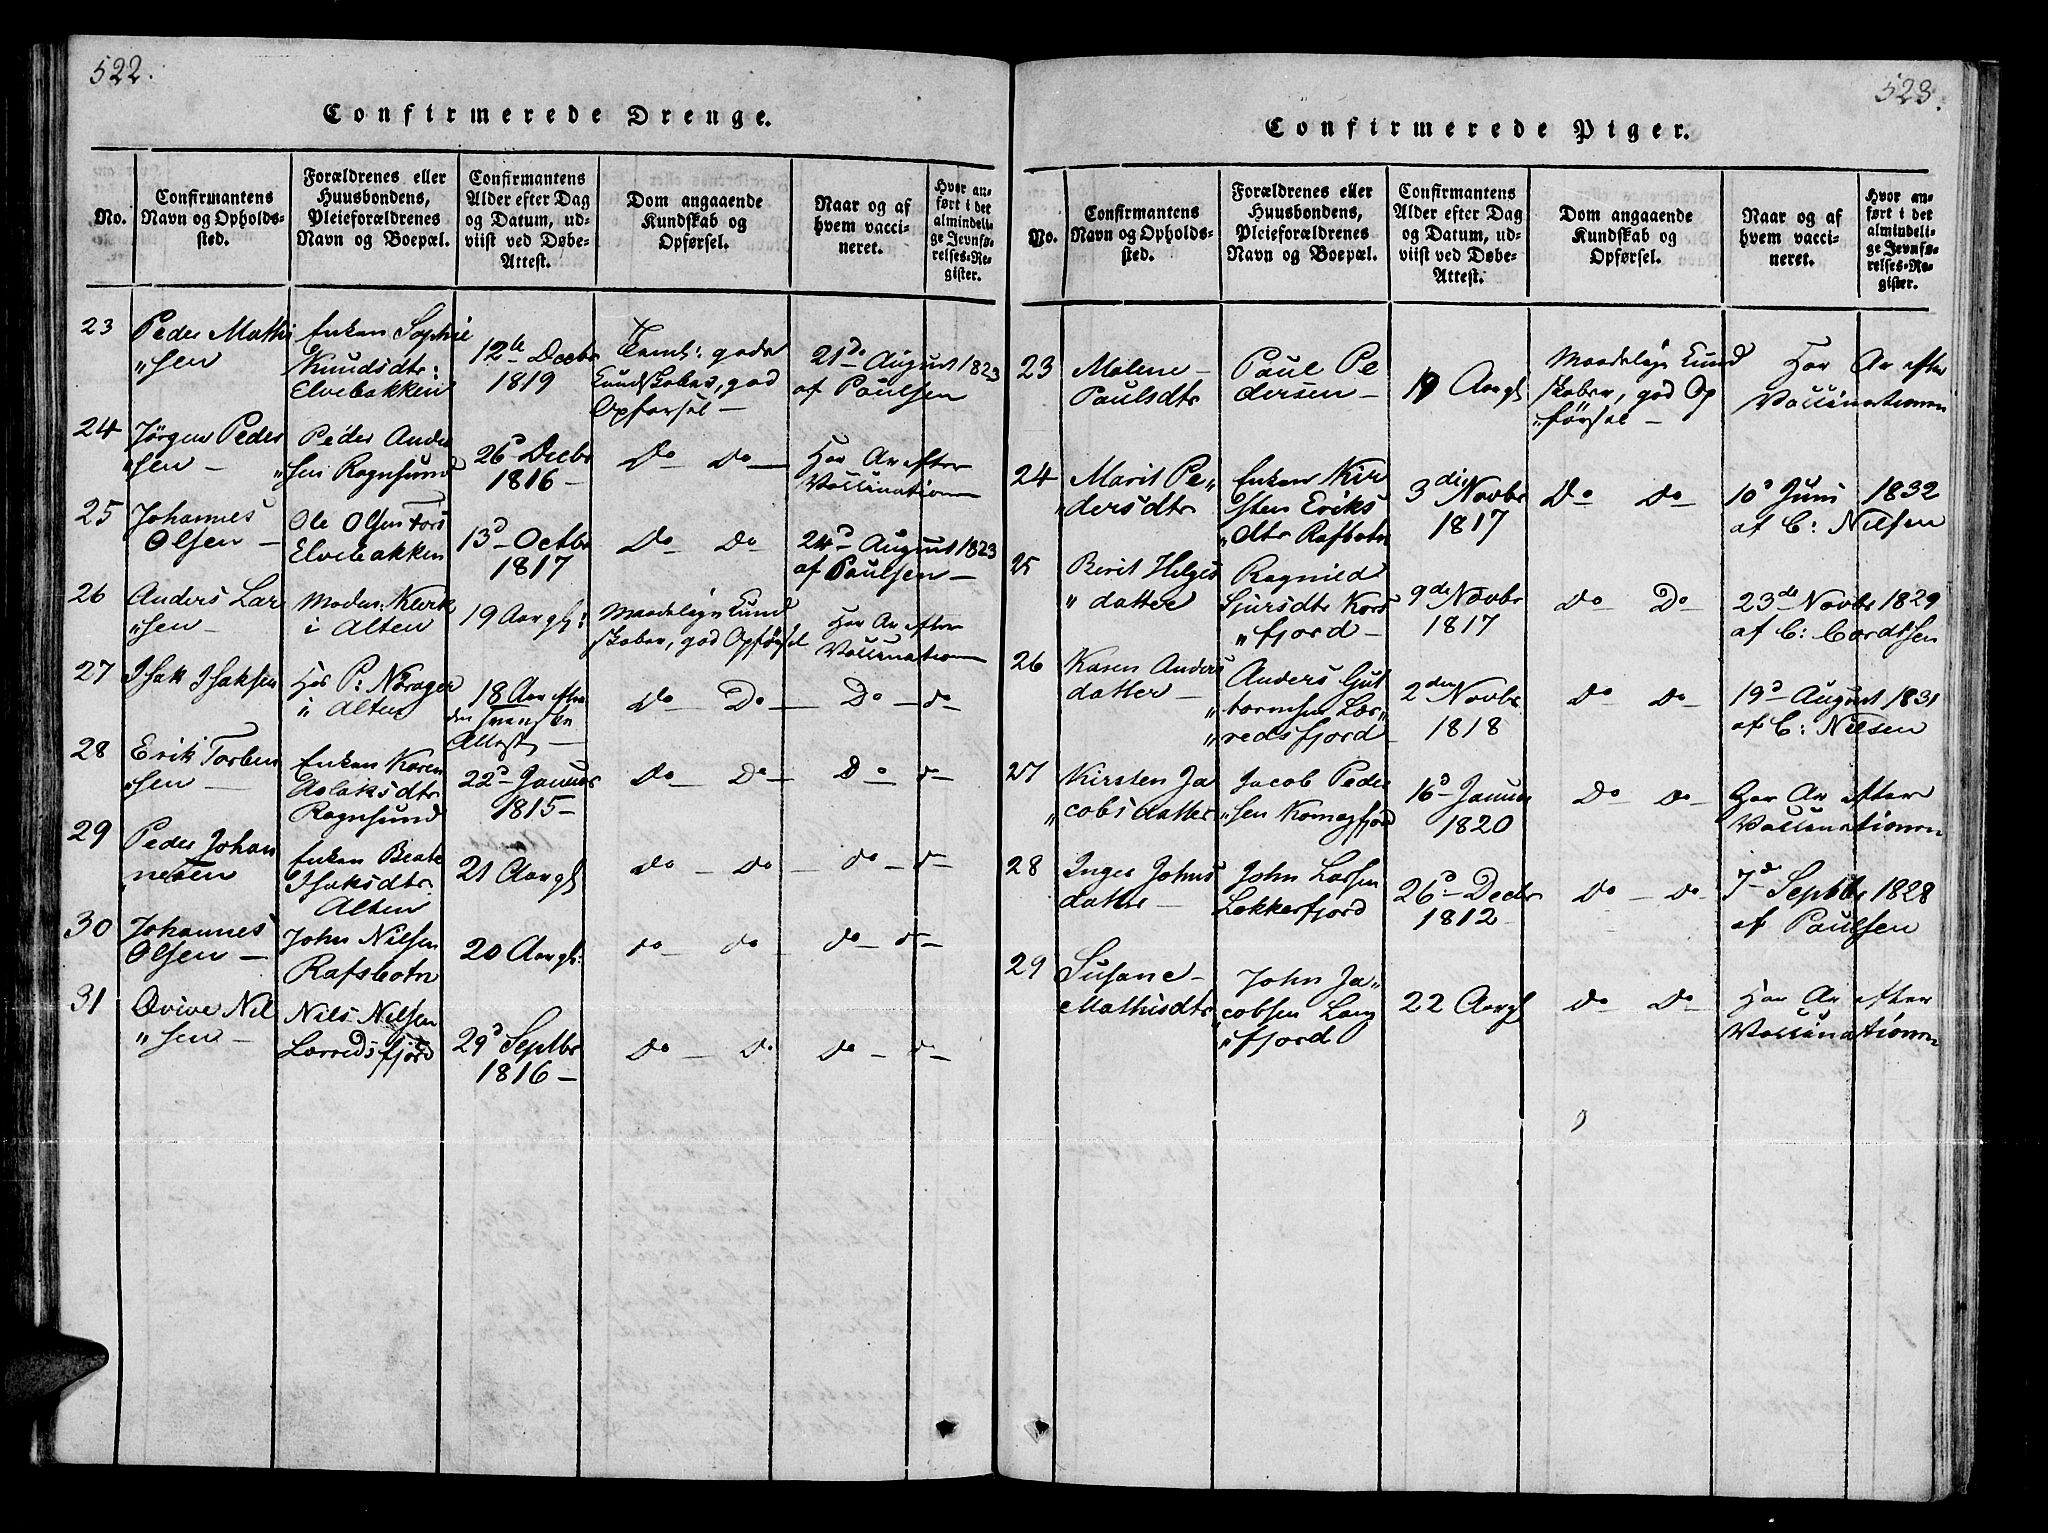 522.
Confirmerede Drenge.
No.
Confirmantens
Navn og Opholds-
sted.
Forældrenes eller
Huusbondens,
Pleieforældrenes
Navn og Boepæl.
Confirmantens
Alder efter Dag
og Datum, ud-
viist ved Døbe-
Attest.
Dom angaaende
Kundskab og
Opførsel.
Naar og af
hvem vacci-
neret.
Hvor an-
ført i det
almindeli-
ge Jevnfø-
relses-Re-
gister.
23
Peder Mathi
"sen
Enken Sophie
Knudsdtr:
Elvebakken
12te Decbr
1819
Teml: gode
Kundskaber, god
Opførsel —
21de August 1823
af Paulsen
24
Jørgen Peder
"sen —
Peder Ander
"sen Rognsund
26d Decbr
1816 —
Do — Do —
Har Ar efter
Vaccinationen
25
Johannes
Olsen —
Ole Olsen Fors
Elvebakken
13d Octbr
1817
Do — Do
24d August 1823
af Paulsen —
26
Anders Lar
"sen —
Madm: Klerk
i Alten
19 Aar gl:
Maadelige Kund
skaber, god Opførsel
Har Ar efter
Vaccinationen
27
Isak Isaksen
Hos P: Norager
i Alten
18 Aar efter
den svenske
Attest —
Do — Do —
Do — do
28
Erik Torben
"sen —
Enken Karen
Aslaksdtr
Rognsund
22d Januar
1815 —
Do — Do —
Do — do —
29
Peder Johan
"nesen
Enken Beate
Isaksdtr
Alten
21 Aar gl
do — do —
do — do —
30
Johannes
Olsen —
John Nilsen
Rafsbotn
20 Aar gl:
do — do
do — do —
31
Qvive Nil
"sen —
Nils Nilsen
Lerredsfjord
29d Septbr
1816 —
Do — Do
Do — do —
523.
Confirmerede Piger.
No.
Confirmantens
Navn og Opholds-
sted.
Forældrenes eller
Huusbondens,
Pleieforældrenes
Navn og Boepæl.
Confirmantens
Alder efter Dag
og Datum, ud-
viist ved Døbe-
Attest.
Dom angaaende
Kundskab og
Opførsel.
Naar og af
hvem vacci-
neret.
Hvor an-
ført i det
almindeli-
ge Jevnfø-
relses-Re-
gister.
23
Malene —
Paulsdtr
Paul Pe
dersen —
19 Aar gl
Maadelige Kund
skaber, god Op
"førsel —
Har Ar efter
Vaccinationen
24
Marit Pe"
"dersdtr
Enken Kir
sten Eriks
"dtr Rafbotn
3die Novbr
1817
Do Do
10d Juni 1832
af C: Nilsen
25
Berit Helges
" datter
Ragnild
Sjursdtr Kors
"fjord —
9de Novbr
1817
do — Do
23de Novbr 1829
af C: Cordtsen
26
Karen Anders
datter —
Anders Gut
"tormsen Ler"
"redsfjord —
2den Novbr
1818
do — do —
19d August 1831
af C: Nilsen
27
Kirsten Ja
"cobsdatter
Jacob Peder
"sen Komagfjord
16d Januar
1820
Do — Do —
Har Ar efter
Vaccinationen
28
Inger Johns
datter —
John Larsen
Lekkerfjord
26d Decbr
1812
do — do
7d Septbr 1828
af Paulsen
29
Susane —
Mathisdtr
John Ja"
cobsen Lang
"fjord
22 Aar gl
Do — Do —
Har Ar efter
Vaccinationen